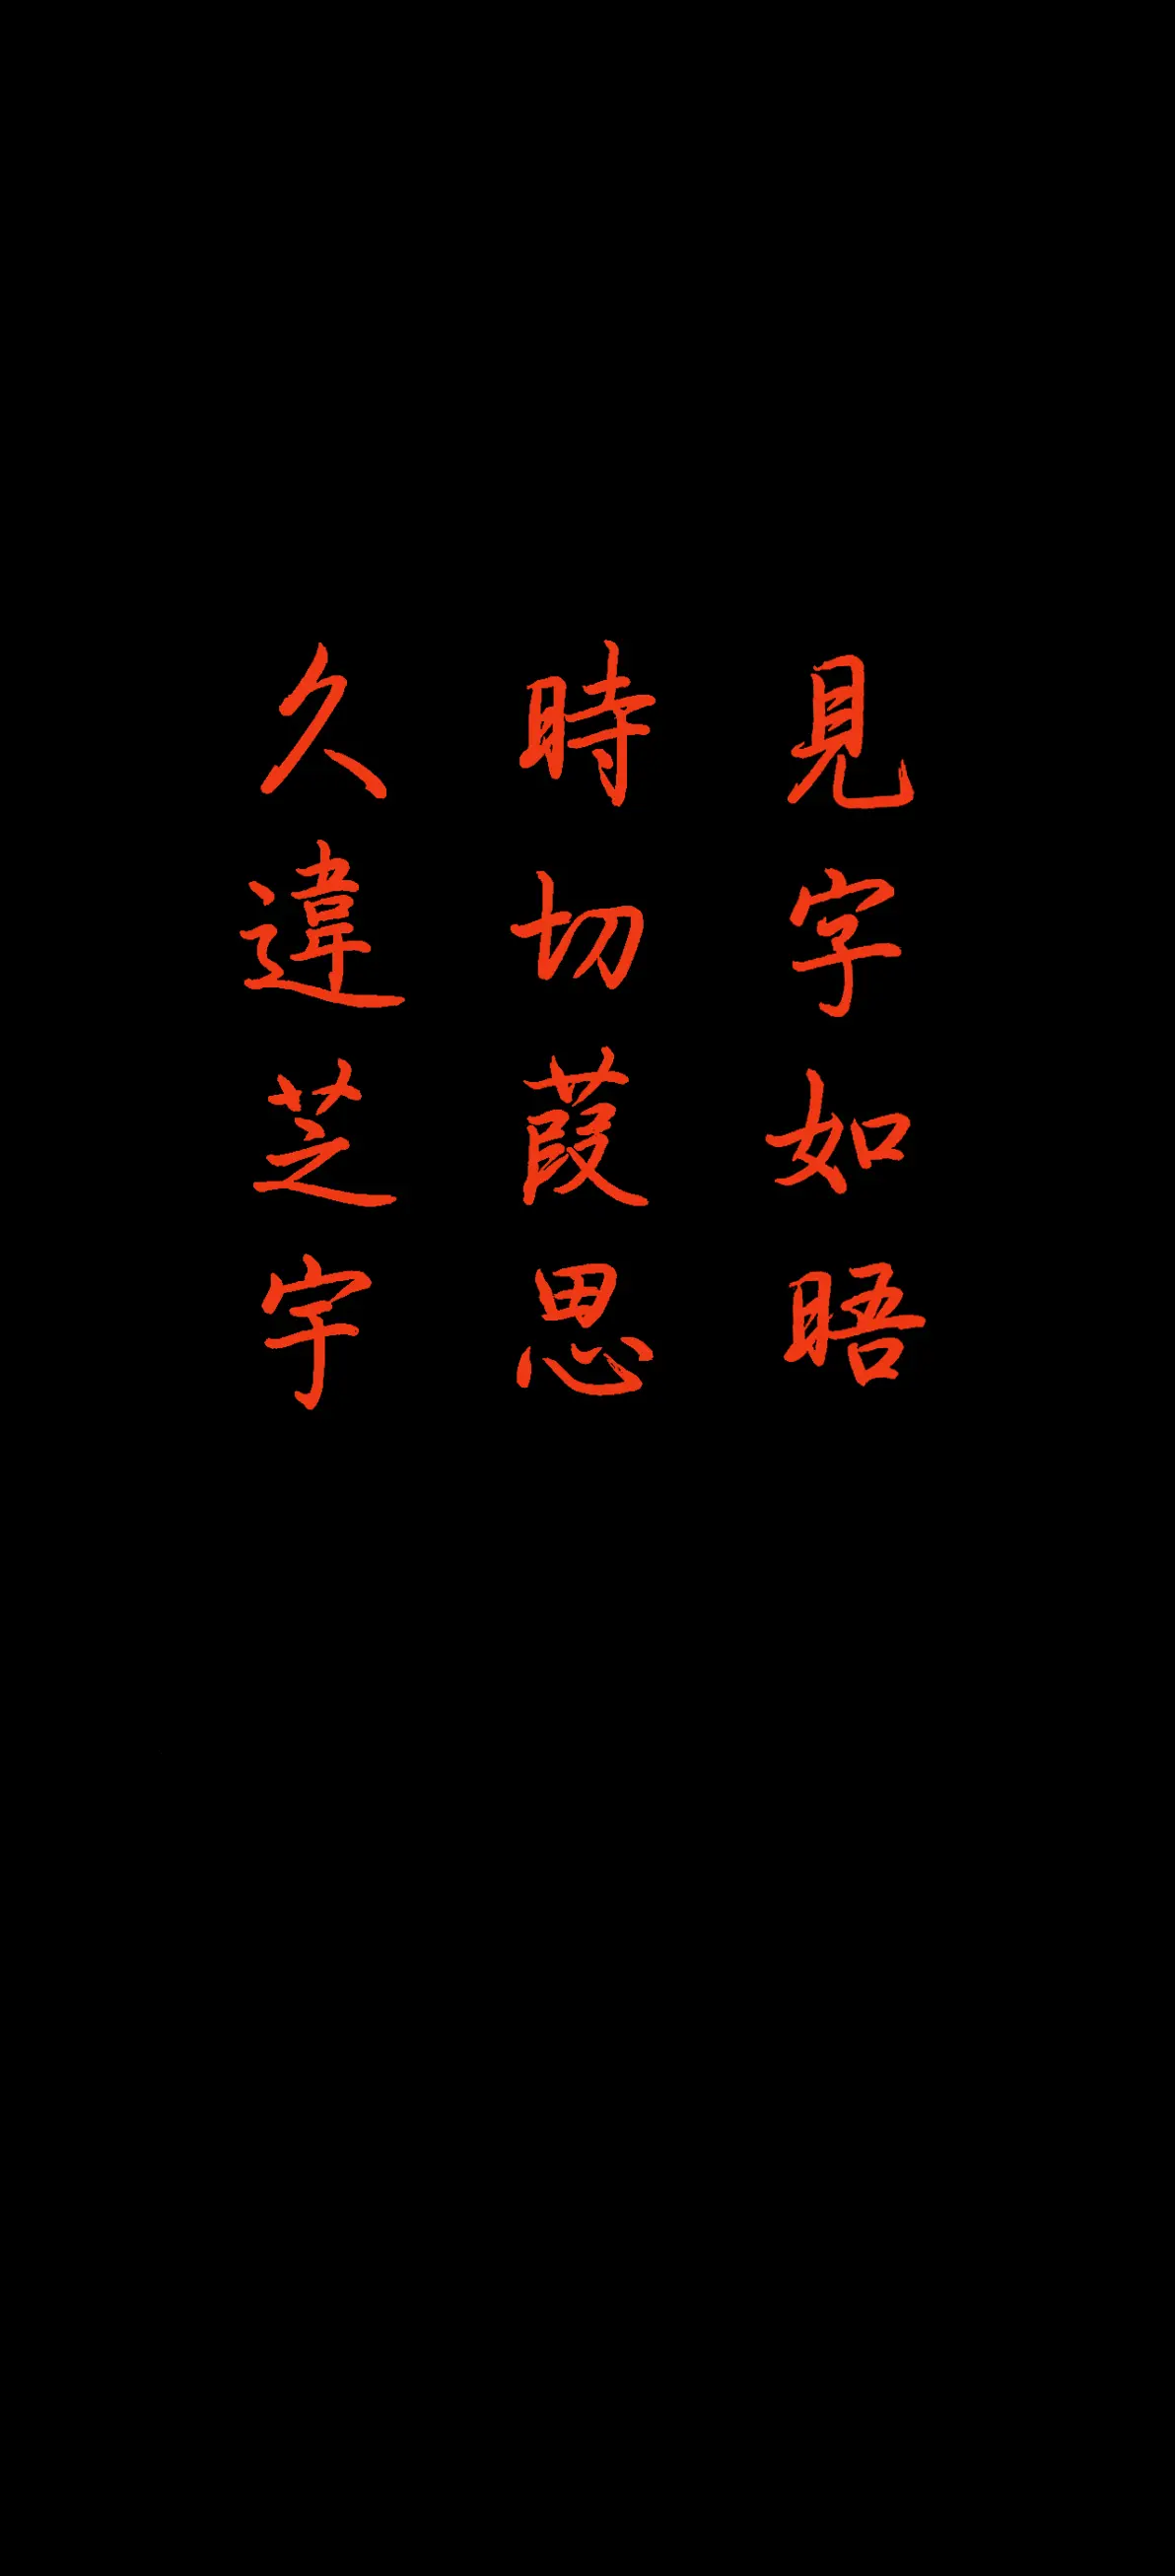 見字如晤
時切葭思
久違芝宇